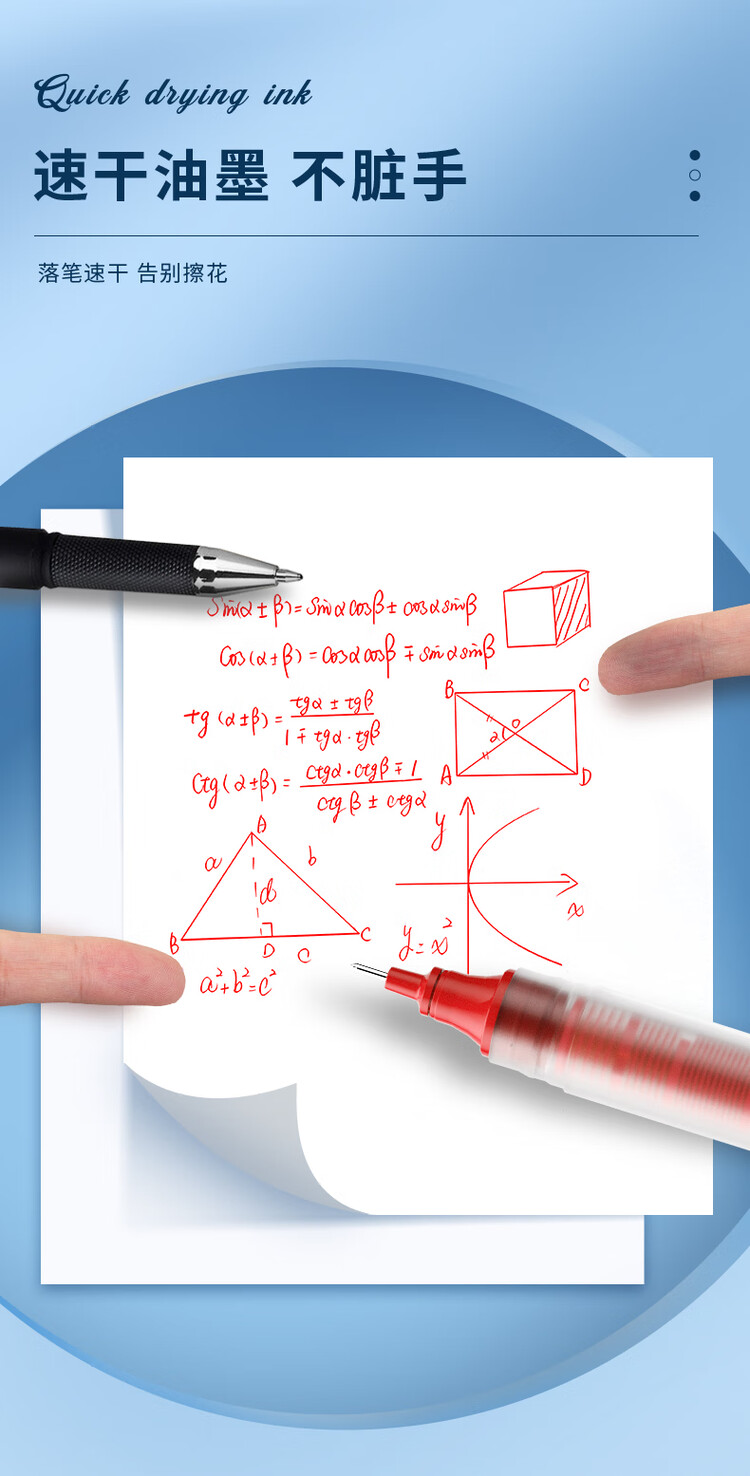 Quick drying ink
速干油墨 不脏手
落笔速干 告别擦花
Sin(α ± β) = Sinα cosβ ± cosα sinβ
Cos(α ± β) = cosα cosβ ∓ sinα sinβ
tg(α ± β) = (tgα ± tgβ) / (1 ∓ tgα · tgβ)
Ctg(α ± β) = (ctgα · ctgβ ∓ 1) / (ctgβ ± ctgα)
B C
O
2
A D
A
a b
d
B D C
c
a²+b²=c²
y
x
y=x²